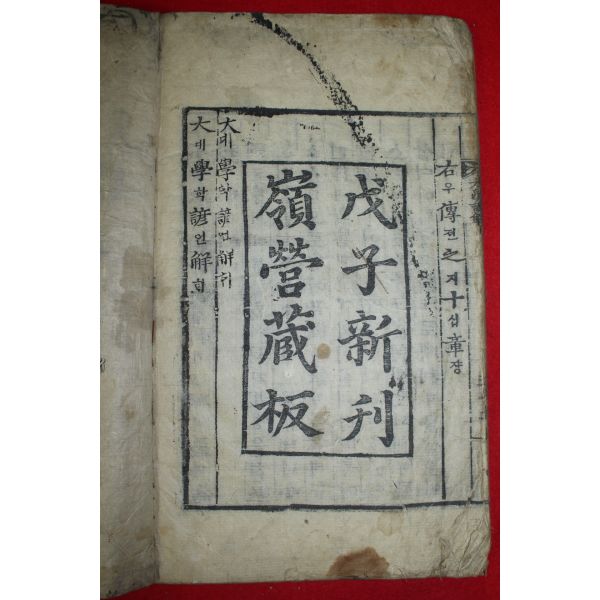 右우傳젼之지十십章쟝
戊子新刊
嶺營藏板
大대學학諺언解ᄒᆡ
大대學학諺언解ᄒᆡ